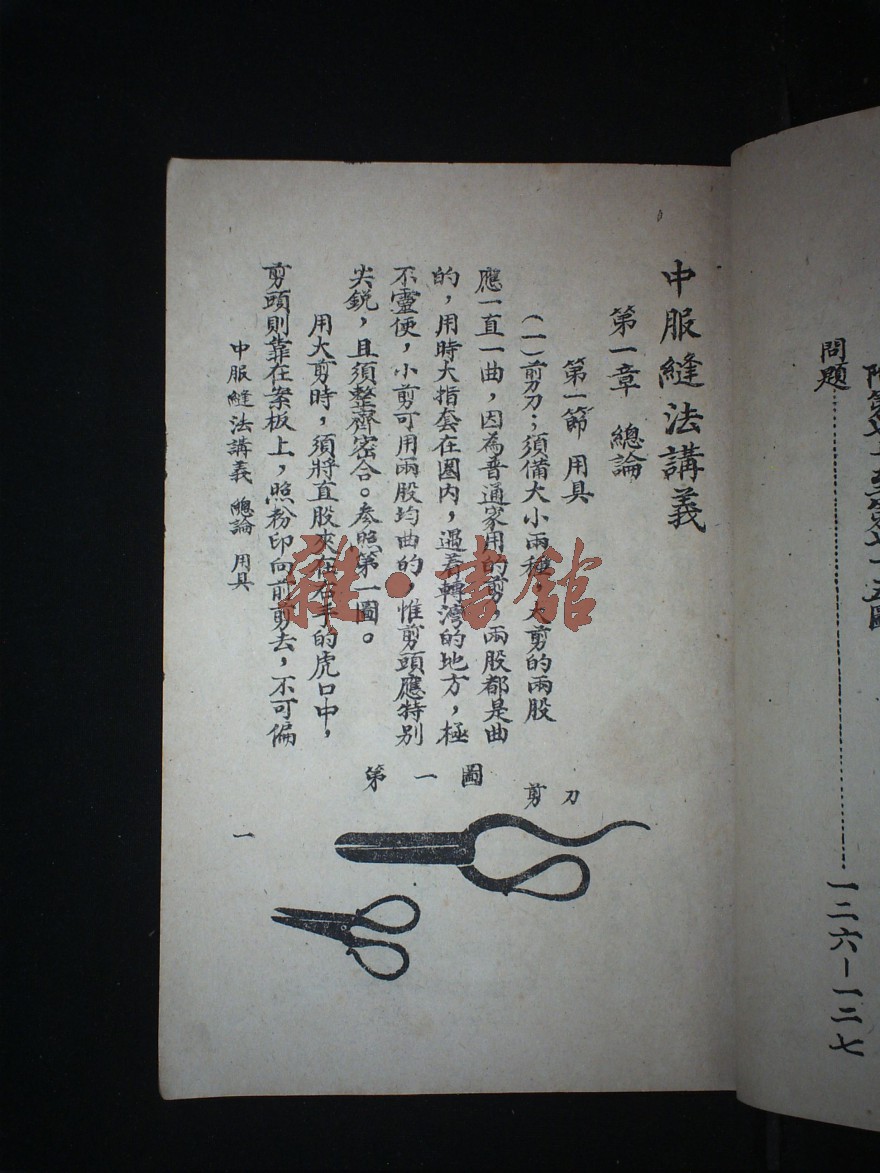 問題……一二六－一二七
中服縫法講義
第一章 總論
第一節 用具
(一)剪刀；須備大小兩種，大剪的兩股
應一直一曲，因為普通家用的剪，兩股都是曲
的，用時大指套在圈内，遇着轉灣的地方，極
不靈便，小剪可用兩股均曲的，惟剪頭應特别
尖銳，且須整齊密合。參照第一圖。
用大剪時，須將直股夾在右手的虎口中，
剪頭則靠在案板上，照粉印向前剪去，不可偏
中服縫法講義 總論 用具
一
第一圖
剪刀
雜·書館